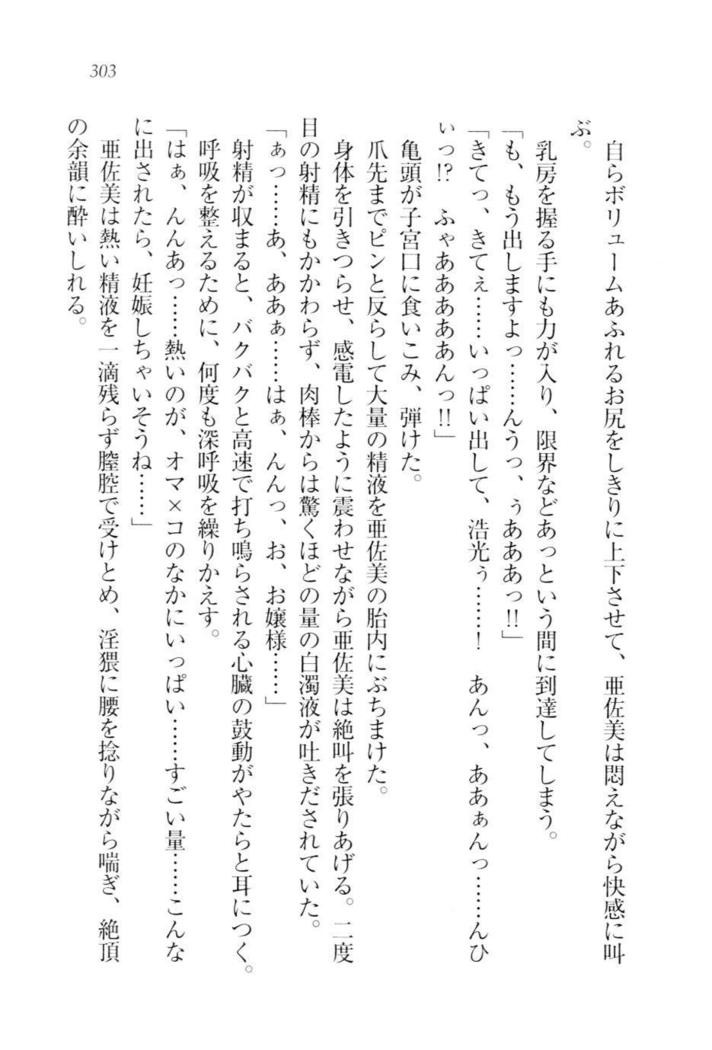 303
自らボリュームあふれるお尻をしきりに上下させて、亜佐美は悶えながら快感に叫
ぶ。
乳房を握る手にも力が入り、限界などあっという間に到達してしまう。
「も、もう出しますよっ……んうっ、ぅあああっ!!」
「きてっ、きてぇ……いっぱい出して、浩光ぅ……！　あんっ、ああぁんっ……んひ
ぃっ!?　ふゃあああああんっ!!」
亀頭が子宮口に食いこみ、弾けた。
爪先までピンと反らして大量の精液を亜佐美の胎内にぶちまけた。
身体を引きつらせ、感電したように震わせながら亜佐美は絶叫を張りあげる。二度
目の射精にもかかわらず、肉棒からは驚くほどの量の白濁液が吐きだされていた。
「ぁっ……あ、ああぁ……はぁ、んんっ、お、お嬢様……」
射精が収まると、バクバクと高速で打ち鳴らされる心臓の鼓動がやたらと耳につく。
呼吸を整えるために、何度も深呼吸を繰りかえす。
「はぁ、んんあっ……熱いのが、オマ×コのなかにいっぱい……すごい量……こんな
に出されたら、妊娠しちゃいそうね……」
亜佐美は熱い精液を一滴残らず膣腔で受けとめ、淫猥に腰を捻りながら喘ぎ、絶頂
の余韻に酔いしれる。